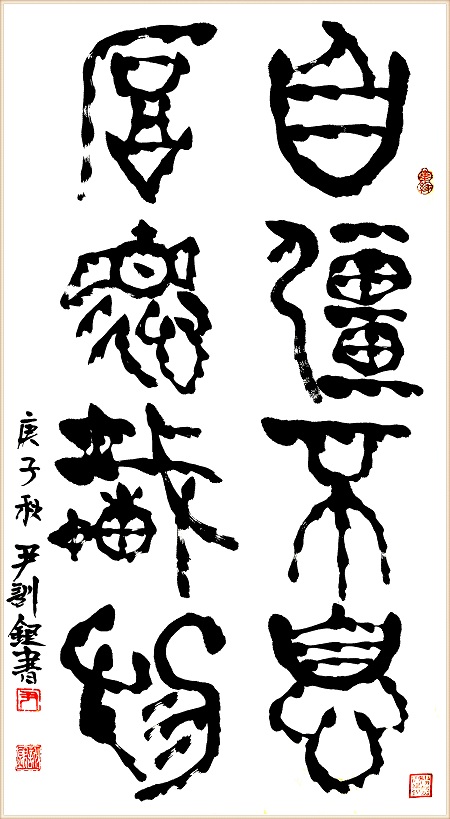 自彊不息
厚德載物
庚子秋 尹訓銀書